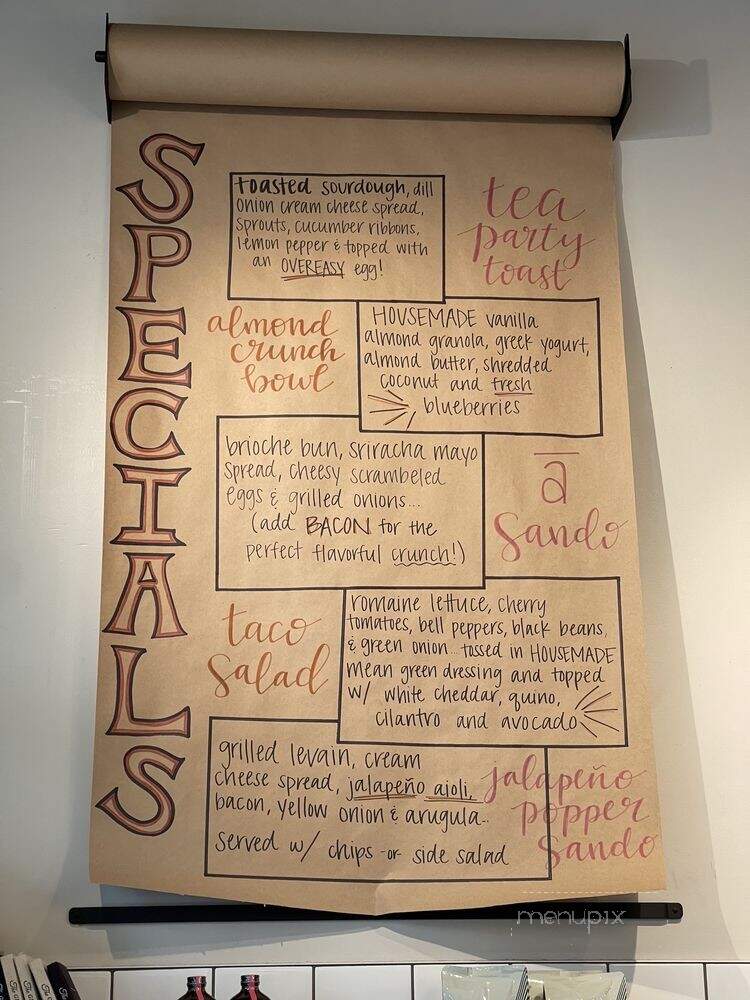 SPECIALS
toasted sourdough, dill
onion cream cheese spread,
sprouts, cucumber ribbons,
lemon pepper & topped with
an OVEREASY egg!
tea
party
toast
almond
crunch
bowl
HOUSEMADE vanilla
almond granola, greek yogurt,
almond butter, shredded
coconut and fresh
blueberries
brioche bun, sriracha mayo
spread, cheesy scrambeled
eggs & grilled onions...
(add BACON for the
perfect flavorful crunch!)
ā
Sando
taco
Salad
romaine lettuce, cherry
tomatoes, bell peppers, black beans,
& green onion... tossed in HOUSEMADE
mean green dressing and topped
w/ white cheddar, quino,
cilantro and avocado
grilled levain, cream
cheese spread, jalapeño aioli,
bacon, yellow onion & arugula..
served w/ chips -or- side salad
jalapeño
popper
Sando
menupix